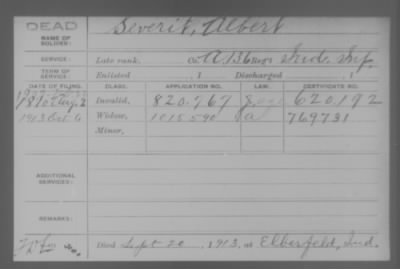 DEAD
NAME OF SOLDIER:
Severit, Albert
SERVICE:
Late rank, Co. A, 136 Reg't Ind. Inf.
TERM OF SERVICE:
Enlisted , 1 Discharged , 1
DATE OF FILING. CLASS. APPLICATION NO. LAW. CERTIFICATE NO.
Invalid, 820.767 620.192
1913 Oct 6 Widow, 1015590 769731
Minor,
ADDITIONAL SERVICES:
REMARKS:
Died Sept 20, 1913, at Elberfeld, Ind.